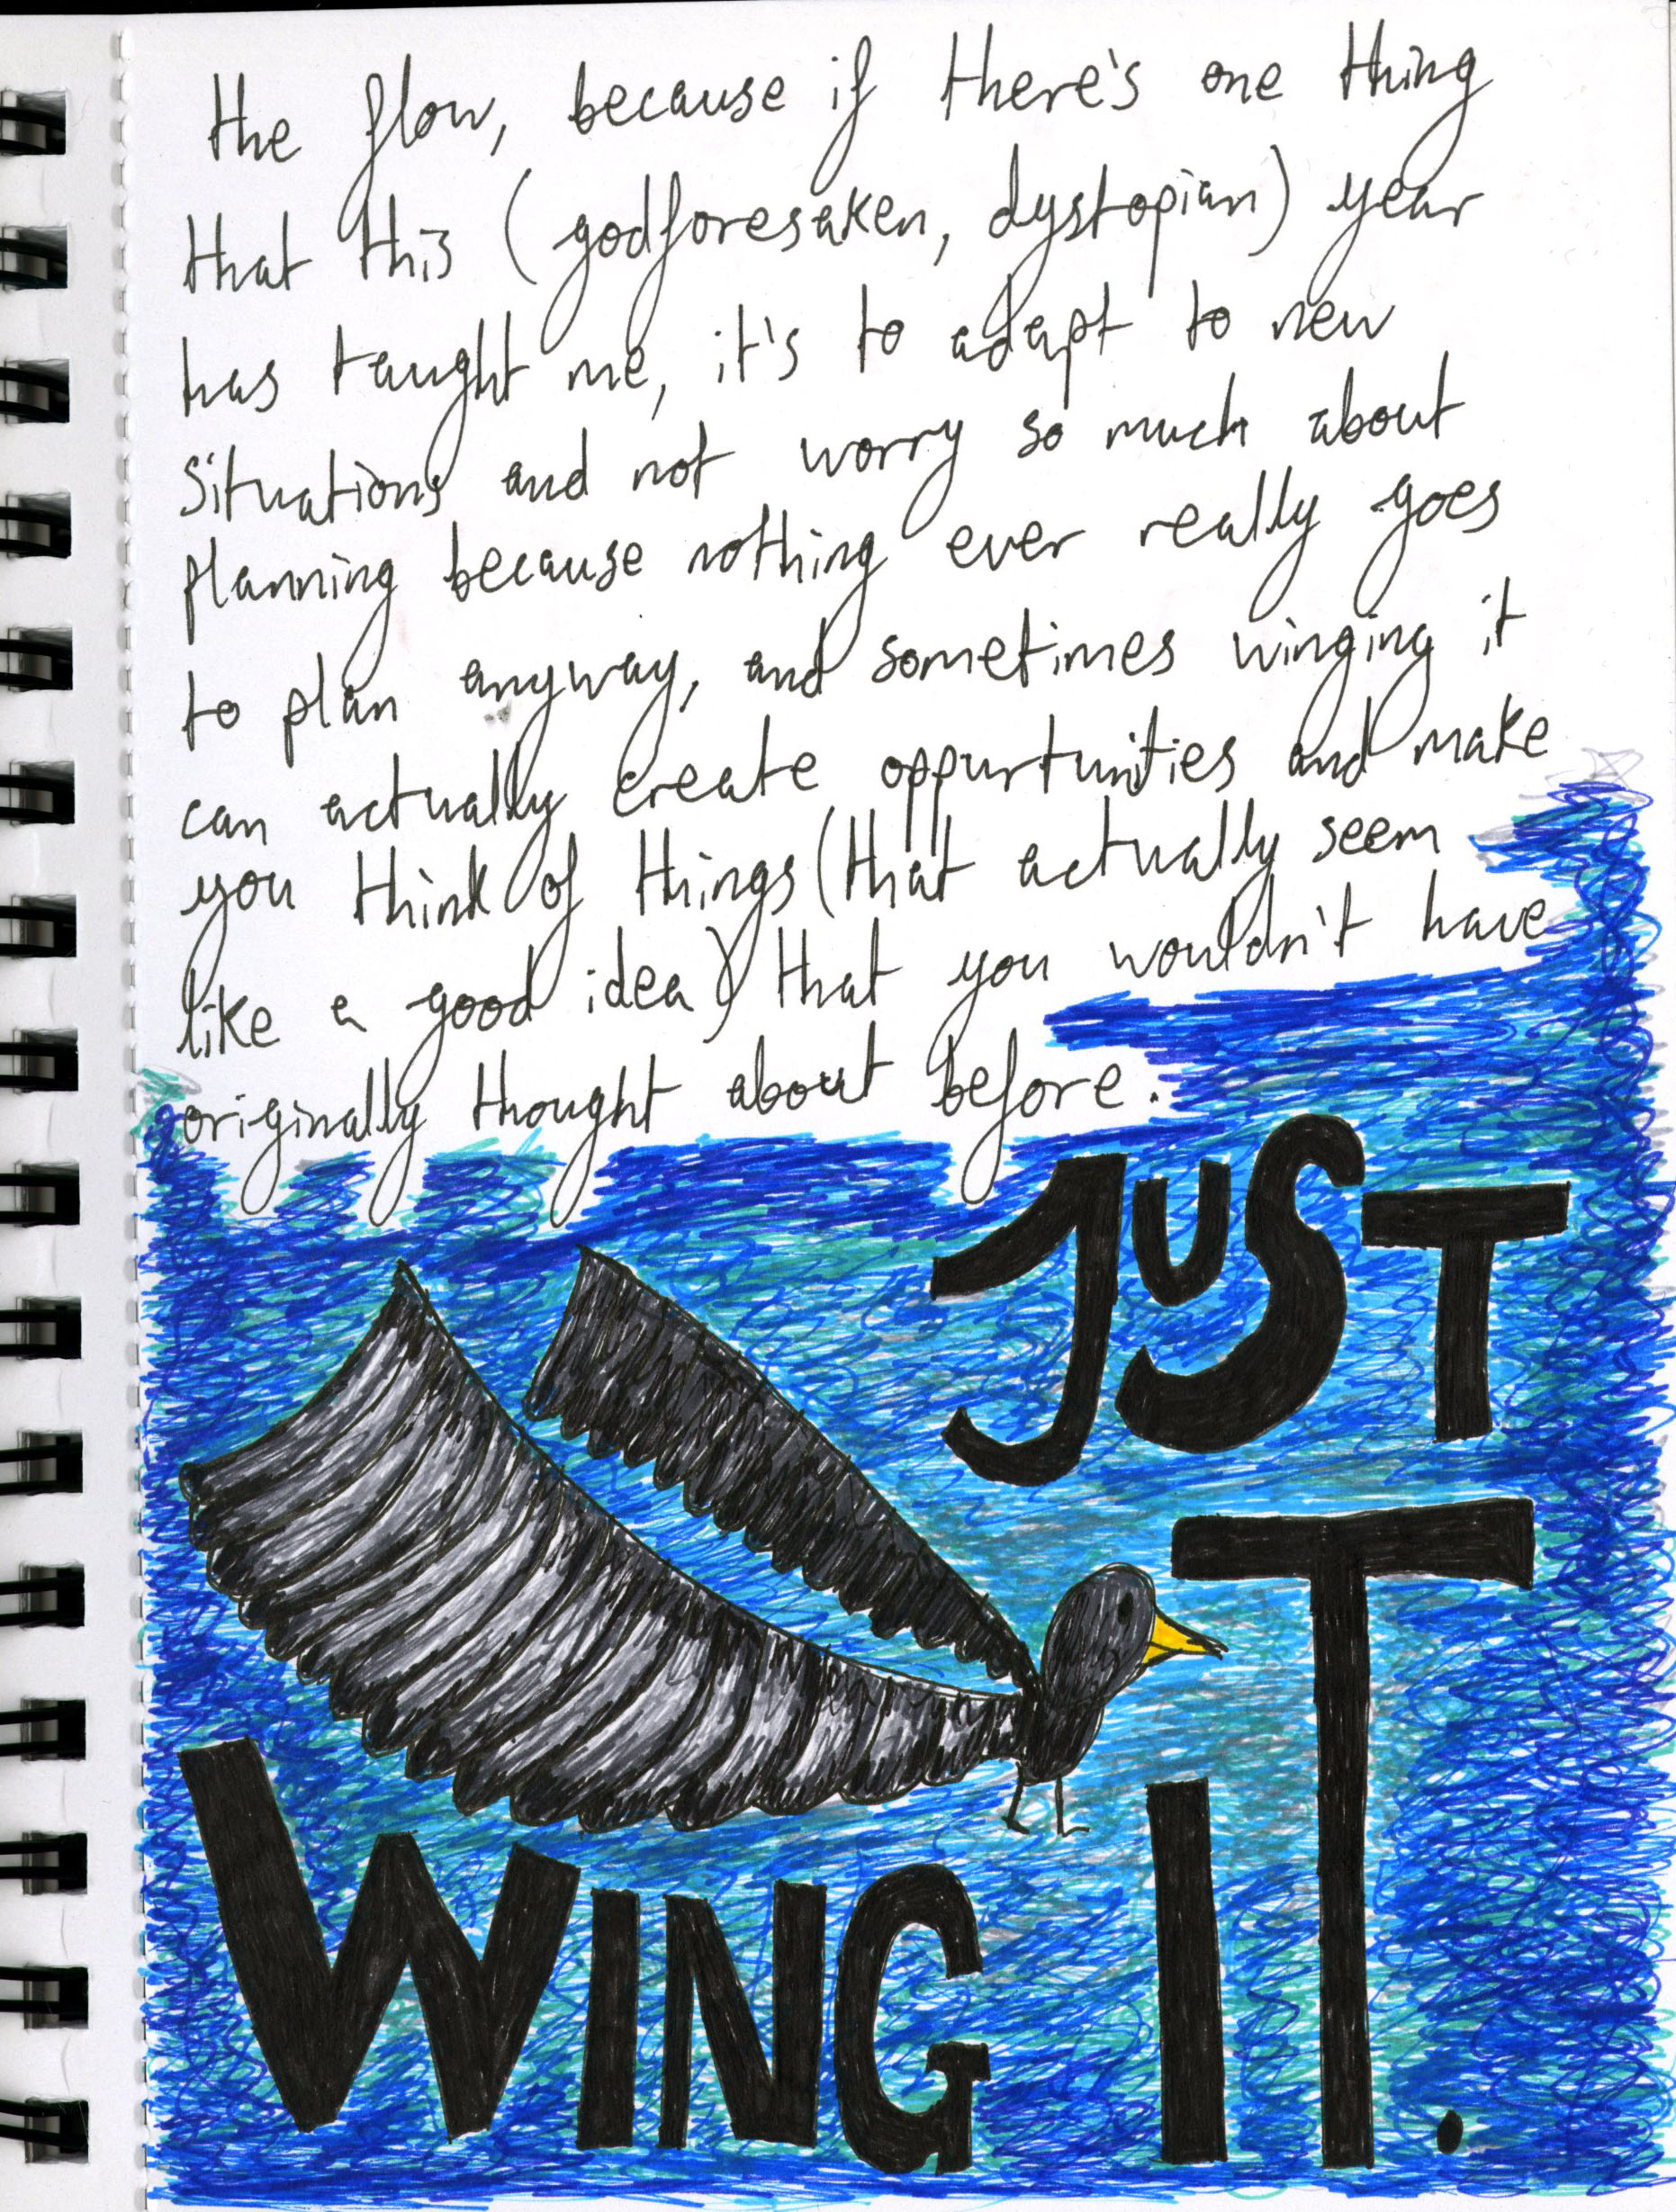 the flow, because if there's one thing
that this (godforesaken, dystopian) year
has taught me, it's to adapt to new
situations and not worry so much about
planning because nothing ever really goes
to plan anyway, and sometimes winging it
can actually create oppurtunities and make
you think of things (that actually seem
like a good idea) that you wouldn't have
originally thought about before.
JUST
WING IT.